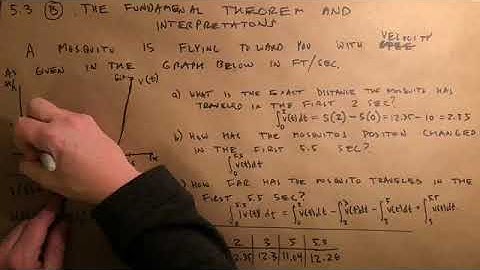 5.3 B THE FUNDAMENAL THEOREM AND
INTERPRETATIONS
A MOSQUITO IS FLYING TOWARD YOU WITH VELOCITY
AS GIVEN IN THE GRAPH BELOW IN FT/SEC.
v(t)
a) WHAT IS THE EXACT DISTANCE THE MOSQUITO HAS
TRAVELED IN THE FIRST 2 SEC?
∫₀² v(t)dt = S(2) - S(0) = 12.35 - 10 = 2.35
b) HOW HAS THE MOSQUITOS POSITON CHANGED
IN THE FIRST 5.5 SEC?
∫₀^5.5 v(t)dt
c) HOW FAR HAS THE MOSQUITO TRAVELED IN THE
FIRST 5.5 SEC?
∫₀^5.5 |v(t)| dt = ∫₀² v(t)dt - ∫₂³ v(t)dt - ∫₃⁵ v(t)dt + ∫₅^5.5 v(t)dt
2 3 5 5.5
12.35 12.3 11.04 12.28